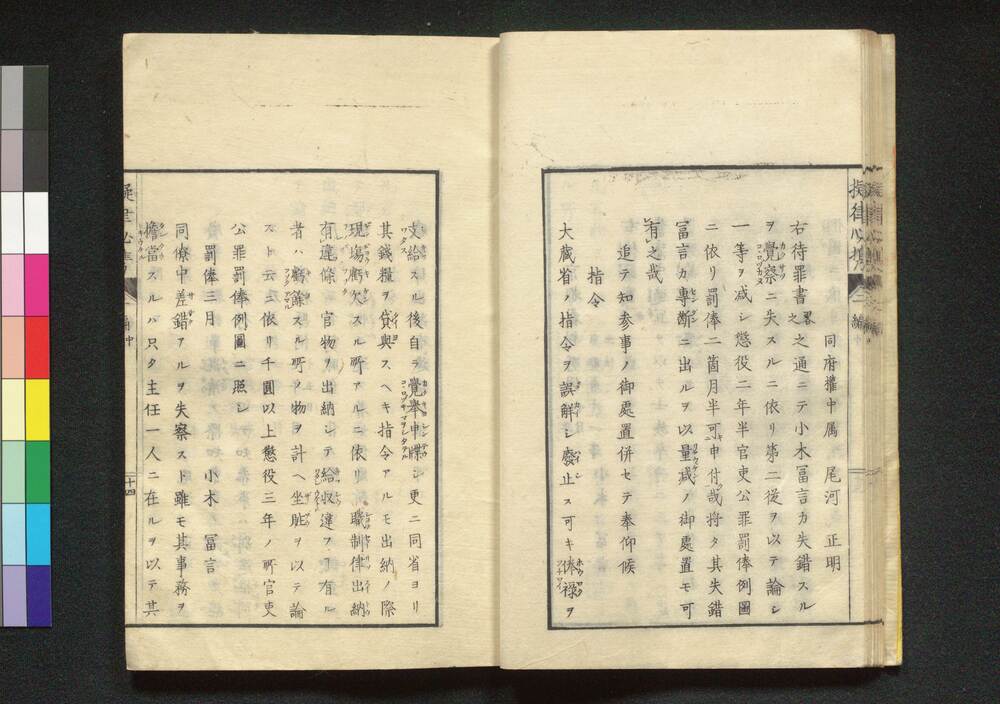 擬律必携
二編
同府權中属 尾河正明
右待罪書畧之之通ニテ小木冨言カ失錯スル
ヲ覺察ニ失スルニ依リ第二從ヲ以テ論シ
一等ヲ减シ懲役二年半官吏公罪罰俸例圖
ニ依リ罰俸二箇月半可申付哉將タ其失錯
冨言カ專斷ニ出ルヲ以量减ノ御處置モ可
有之哉
追テ知参事ノ御處置併セテ奉仰候
指令
大藏省ノ指令ヲ誤解シ廢止ス可キ俸禄ヲ
支給スル後自ラ覺舉申牒シ更ニ同省ヨリ
其錢糧ヲ貸與スヘキ指令アルモ出納ノ際
現塲虧欠スル所アルニ依リ職制律出納
有違條官物ヲ出納シテ給収違フヿ有ル
者ハ虧餘スル所ノ物ヲ計ヘ坐贓ヲ以テ論
スト云ニ依リ千圓以上懲役三年ノ所官吏
公罪罰俸例圖ニ照シ
罰俸三月 小木冨言
同僚中差錯アルヲ失察スト雖モ其事務ヲ
擔當スルハ只タ主任一人ニ在ルヲ以テ其
十四